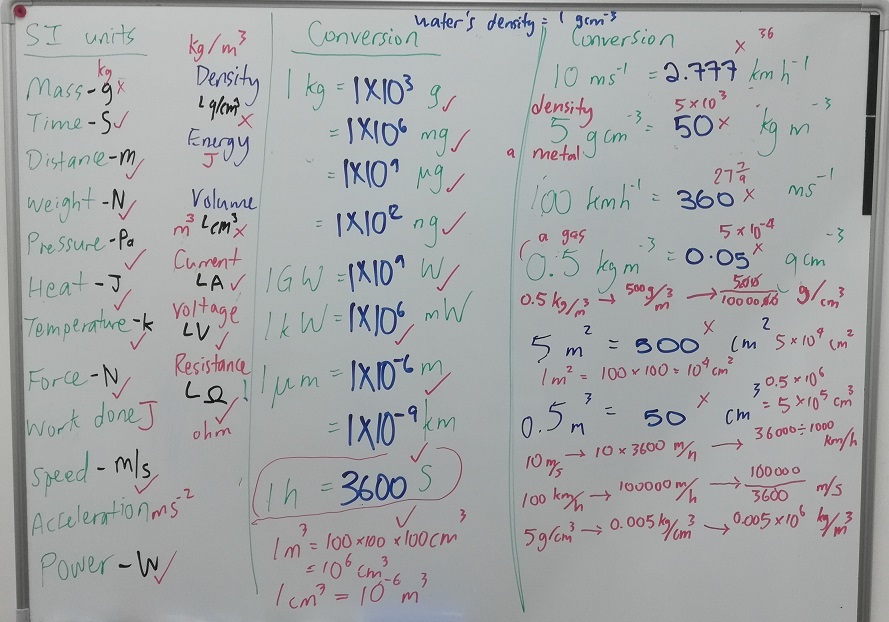 water's density = 1 gcm⁻³
SI units
kg
Mass - g x
Time - S ✓
Distance - m ✓
Weight - N ✓
Pressure - Pa ✓
Heat - J ✓
Temperature - k ✓
Force - N ✓
Work done J
Speed - m/s ✓
Acceleration ms⁻²
Power - W ✓
kg/m³
Density
L g/cm³ x
Energy
J
Volume
m³ L cm³ x
Current
L A ✓
Voltage
L V ✓
Resistance
L Ω ! ✓
ohm
Conversion
1 kg = 1X10³ g ✓
= 1X10⁶ mg ✓
= 1X10⁹ µg ✓
= 1X10¹² ng ✓
1 GW = 1X10⁹ W ✓
1 kW = 1X10⁶ mW ✓
1 µm = 1X10⁻⁶ m ✓
= 1X10⁻⁹ km ✓
1 h = 3600 S ✓
1 m³ = 100 × 100 × 100 cm³
= 10⁶ cm³
1 cm³ = 10⁻⁶ m³
Conversion
x 36
10 ms⁻¹ = 2.777 km h⁻¹
density 5 x 10³
5 g cm⁻³ = 50 x kg m⁻³
a metal
27 7/9
100 kmh⁻¹ = 360 x ms⁻¹
a gas 5 x 10⁻⁴
0.5 kg m⁻³ = 0.05 x g cm⁻³
0.5 kg/m³ → 500 g/m³ → 500/1000000 g/cm³
5 m² = 500 x cm² 5 x 10⁴ cm²
1 m² = 100 x 100 = 10⁴ cm²
0.5 m³ = 50 x cm³ 0.5 x 10⁶
= 5 x 10⁵ cm³
10 m/s → 10 x 3600 m/h → 36000 ÷ 1000 km/h
100 km/h → 100000 m/h → 100000/3600 m/s
5 g/cm³ → 0.005 kg/cm³ → 0.005 x 10⁶ kg/m³